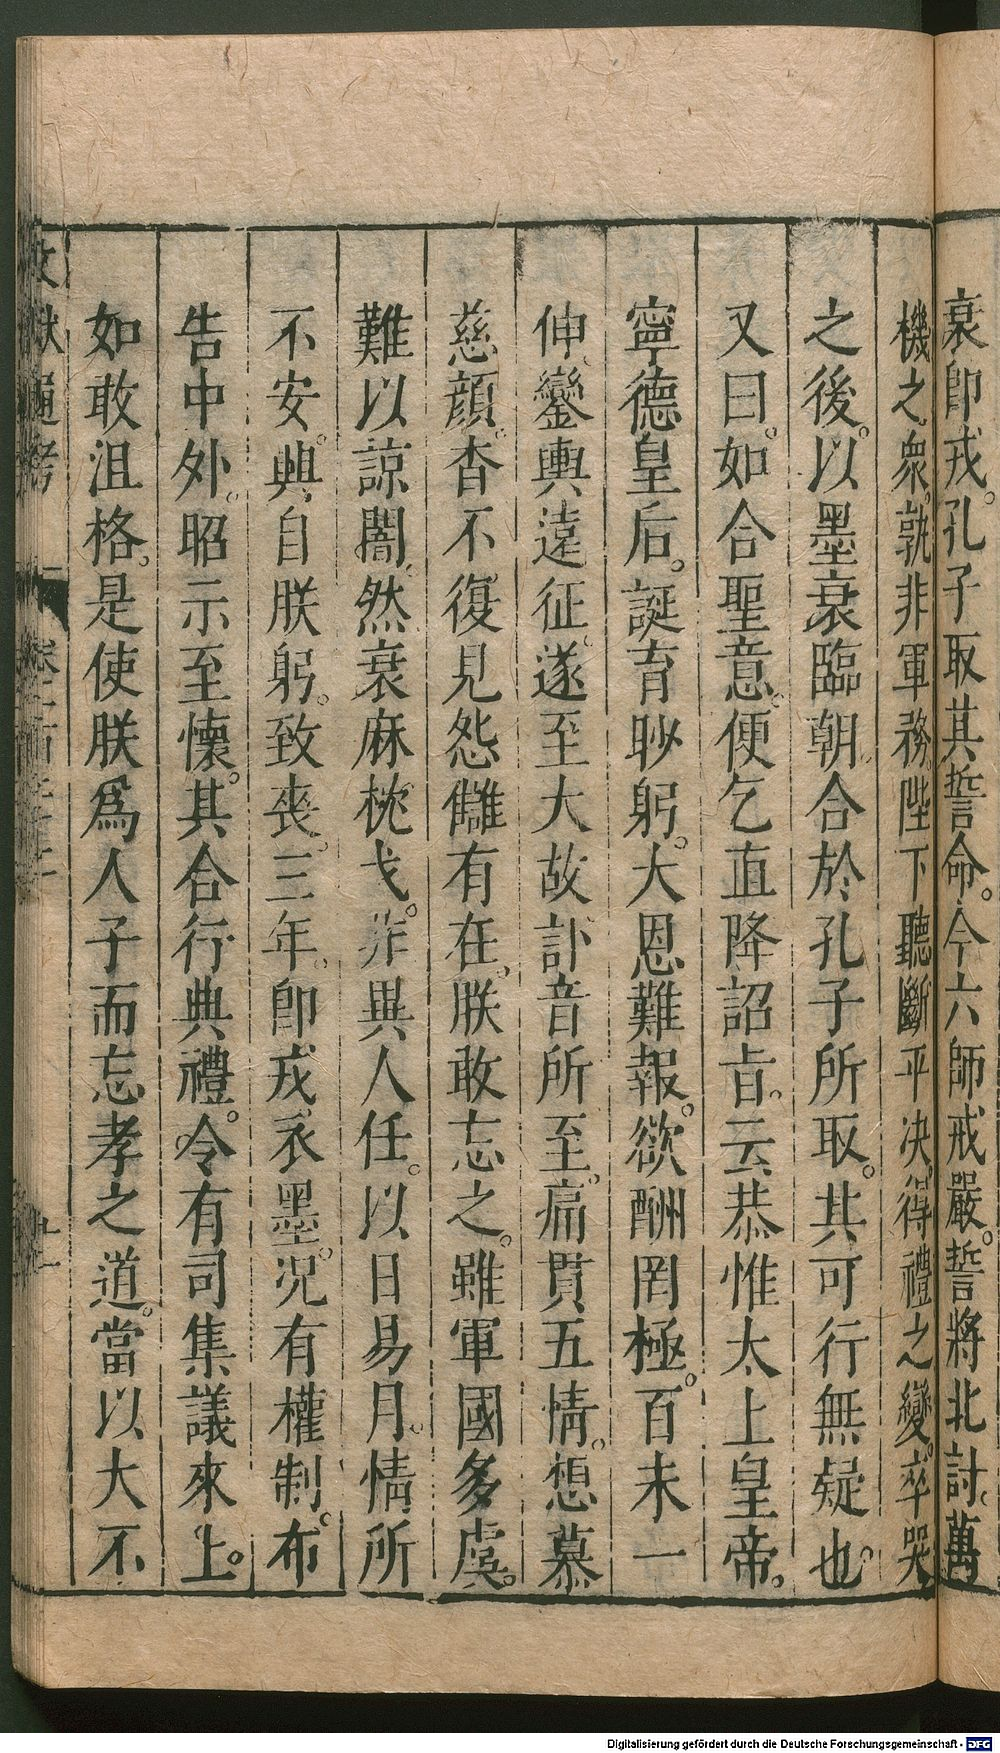 衰卽戎。孔子取其誓命。今六師戒嚴。誓將北討。萬
機之衆。孰非軍務。陛下聽斷平決。得禮之變。卒哭
之後。以墨衰臨朝。合於孔子所取。其可行無疑也。
又曰。如合聖意。便乞直降詔旨。云恭惟太上皇帝。
寧德皇后。誕育眇躬。大恩難報。欲酬罔極。百未一
伸。鑾輿遠征。遂至大故。訃音所至。痛貫五情。想慕
慈顏。杳不復見。怨讎有在。朕敢忘之。雖軍國多虞。
難以諒闇。然衰麻枕戈。非異人任。以日易月。情所
不安。興自朕躬。致喪三年。卽戎衣墨。況有權制。布
告中外。昭示至懷。其合行典禮。令有司集議來上。
如敢沮格。是使朕爲人子而忘孝之道。當以大不
文獻通考 卷之一百二十二 九十一
Digitalisierung gefördert durch die Deutsche Forschungsgemeinschaft - DFG